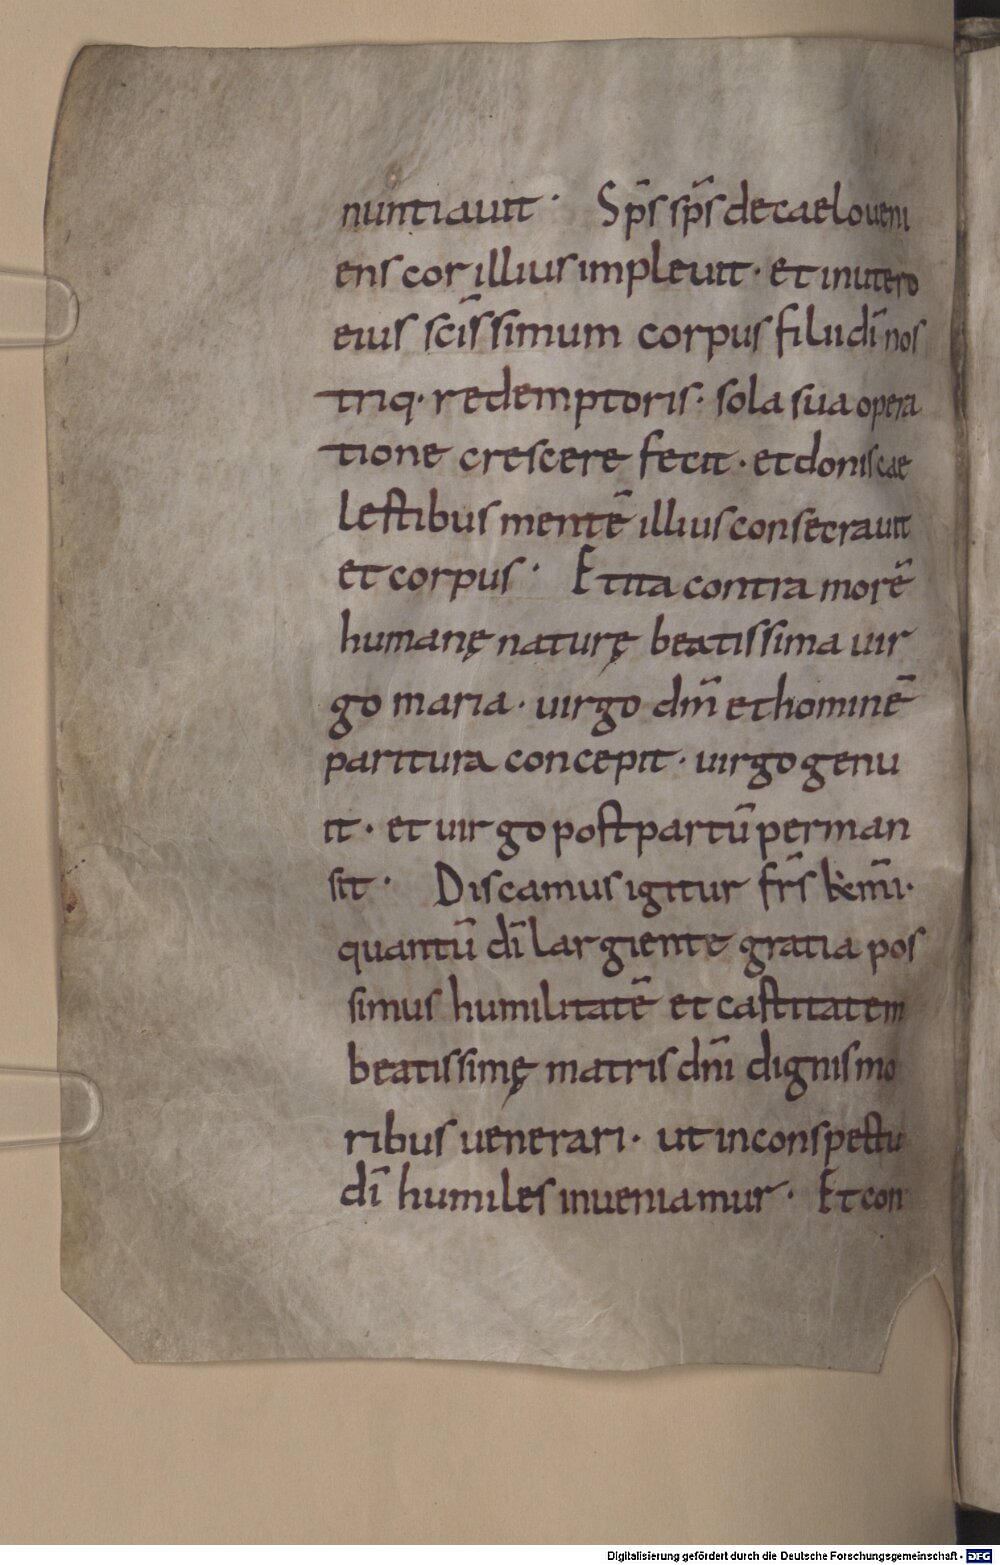 nuntiauit · Sp̄s sp̄s de caelo ueni
ens cor illius impleuit · et in utero
eius sc̄issimum corpus filii dī nos
triq· redemptoris · sola sua opera
tione crescere fecit · et donis cae
lestibus mentē illius consecrauit
et corpus · Et ita contra morē
humanę naturę beatissima uir
go maria · uirgo dm̄ et hominē
paritura concepit · uirgo genu
it · et uirgo post partū perman
sit · Discamus igitur fr̄s km̄i·
quantū dī largiente gratia pos
simus humilitatē et castitatem
beatissimę matris dn̄i dignis mo
ribus uenerari · ut in conspectu
dī humiles inueniamur · Et con
Digitalisierung gefördert durch die Deutsche Forschungsgemeinschaft - DFG